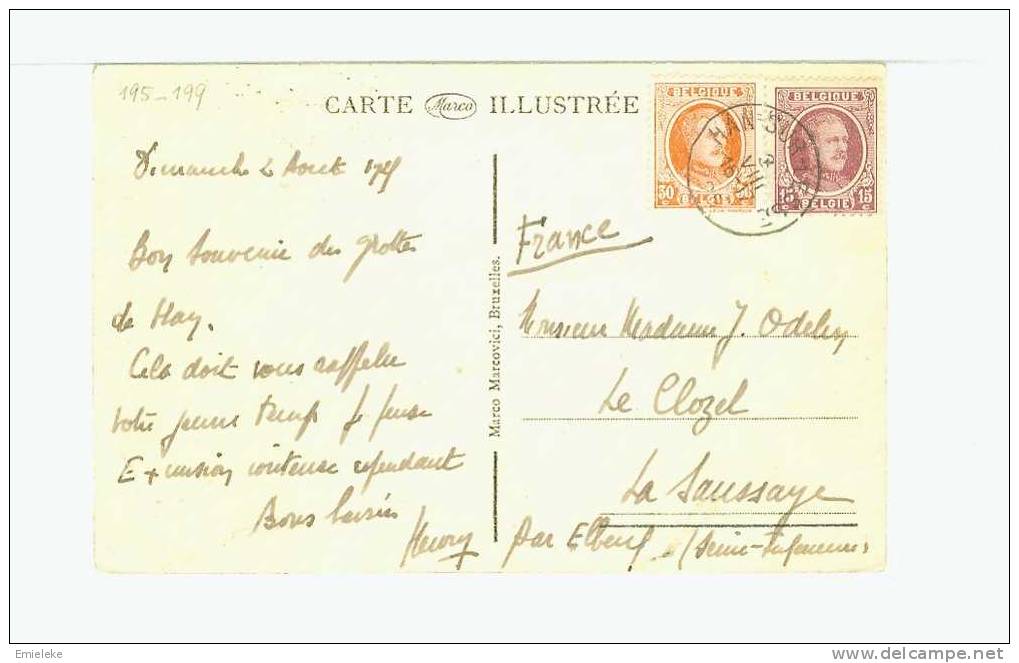 195-199
CARTE Marco ILLUSTRÉE
BELGIQUE BELGIQUE
HAN-SUR
VIII
30 15 15
BELGIE BELGIE
Dimanche 2 Aout
Bon Souvenir des grottes
de Han.
Cela doit vous rappeler
votre jeune temps je pense
Excursion couteuse cependant
Bons baisers
Henry
Marco Marcovici, Bruxelles.
France
Monsieur Madame J.
Le Clozel
La Saussaye
par Elbeuf (Seine-Inférieure)
Emieleke
delcampe.net